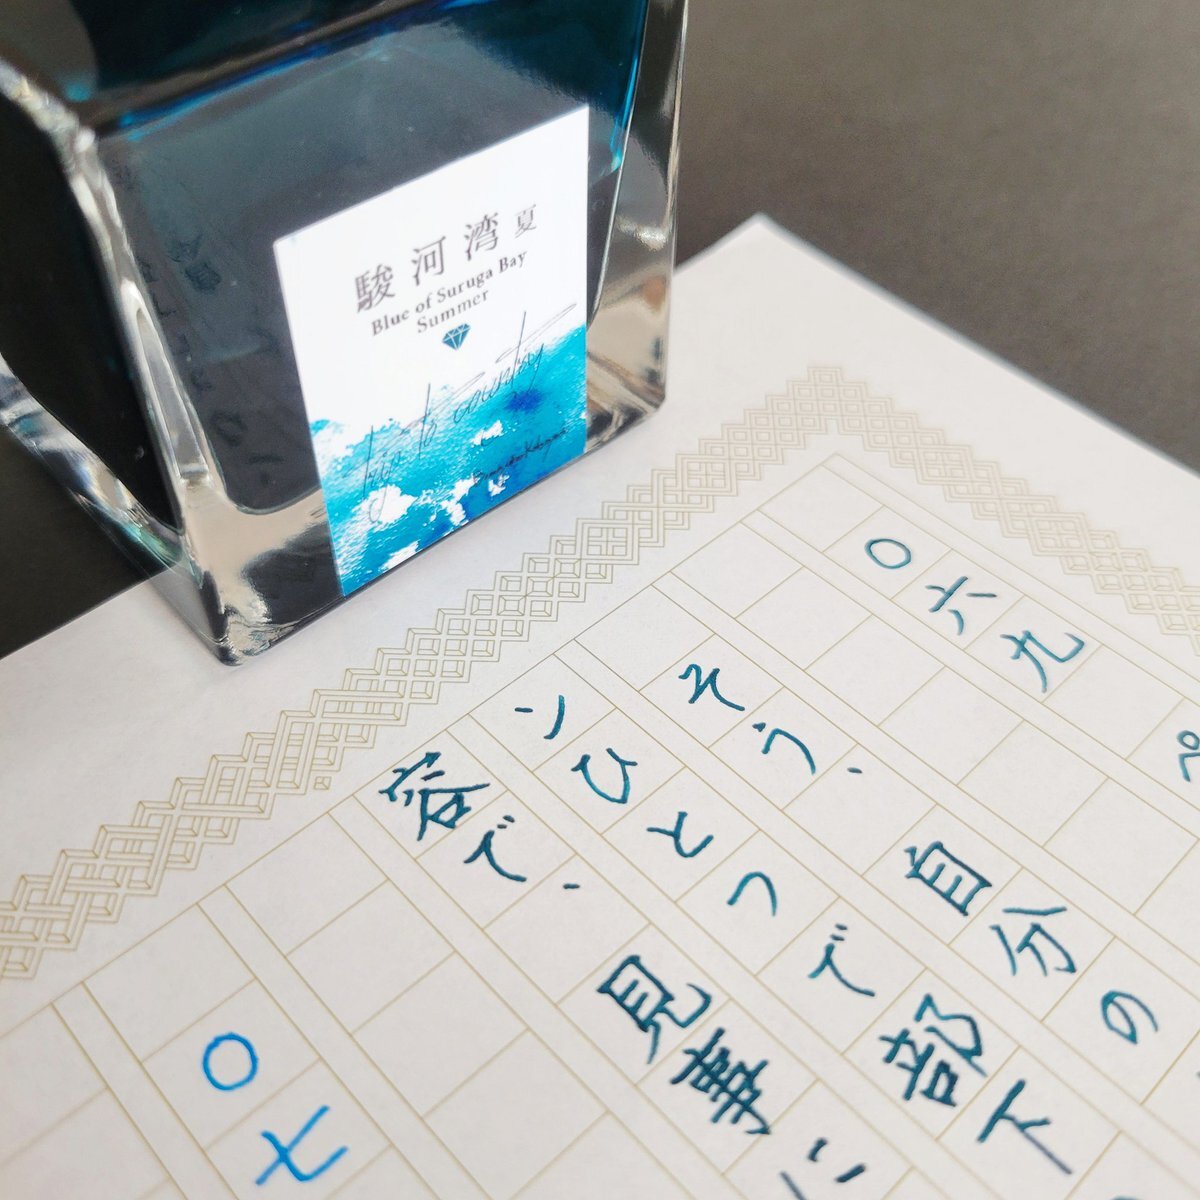 駿河湾 夏
Blue of Suruga Bay
Summer
〇六九 ペ
そう、自分の
ンひとつで部下
容で、見事に
〇七